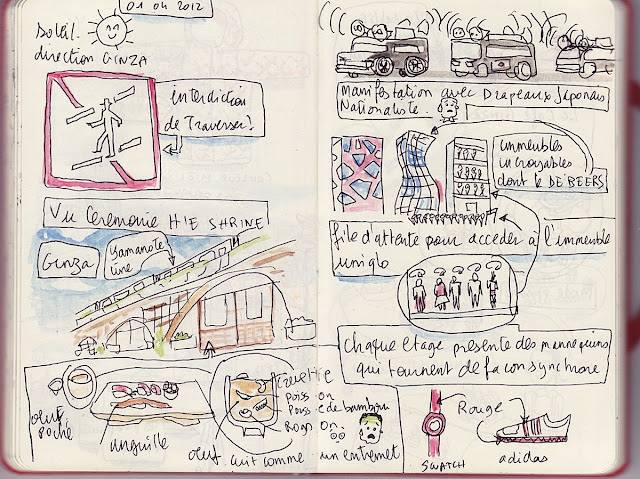 01 04 2012
Soleil
direction GINZA
interdiction
de Traverser!
Vu Cérémonie H'E SHRINE
Ginza
Yamanote
line
oeuf
poché
anguille
Crevette
Poisson
Pousse de bambou
oeuf cuit comme un entremet
Manifestation avec Drapeaux Japonais
Nationaliste
immeubles
incroyables
dont le DE BEERS
file d'attente pour acceder à l'immeuble
uniqlo
Chaque étage présente des mannequins
qui tournent de facon synchrone
Rouge
SWATCH
adidas